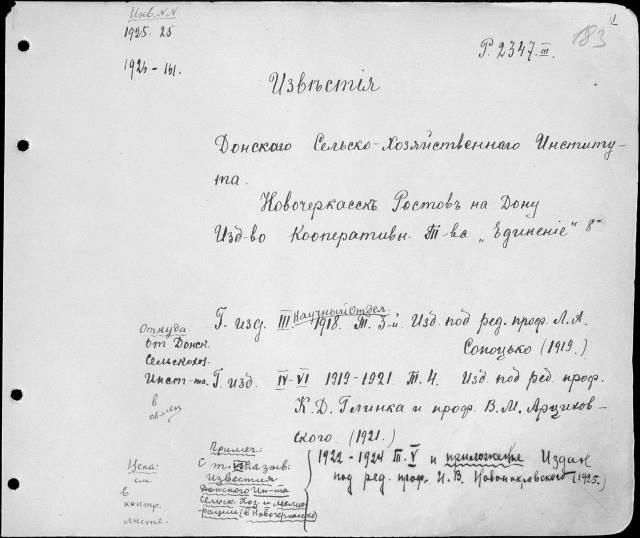 Инв. N.N
1925. 25
1926 - 161.
Р. 2347. III.
183
1
Извѣстія
Донскаго Сельско-Хозяйственнаго Институ-
та.
Новочеркасскъ Ростовъ на Дону
Изд-во Кооперативн. Т-ва „Единеніе" 8°
Научный Отдел.
Г. изд. III 1918. Т. 3-й. Изд. под ред. проф. Л. А.
Сопоцько (1919.)
Г. изд. IV-VI 1919-1921. Т. 4. Изд. под ред. проф.
К. Д. Глинка и проф. В. М. Арцихов-
ского. (1921.)
1922-1924 Т. V и приложение Издан
под ред. проф. И. В. Новопокровского (1925.)
Откуда:
от Донск.
Сельскохоз.
Инст-та.
в
обмен
Цена:
см
в
контр.
листе.
Примеч.:
С т. VI назв:
Известия
Донского Ин-та
Сельск. Хоз. и Мелио-
рации (в Новочеркасске)